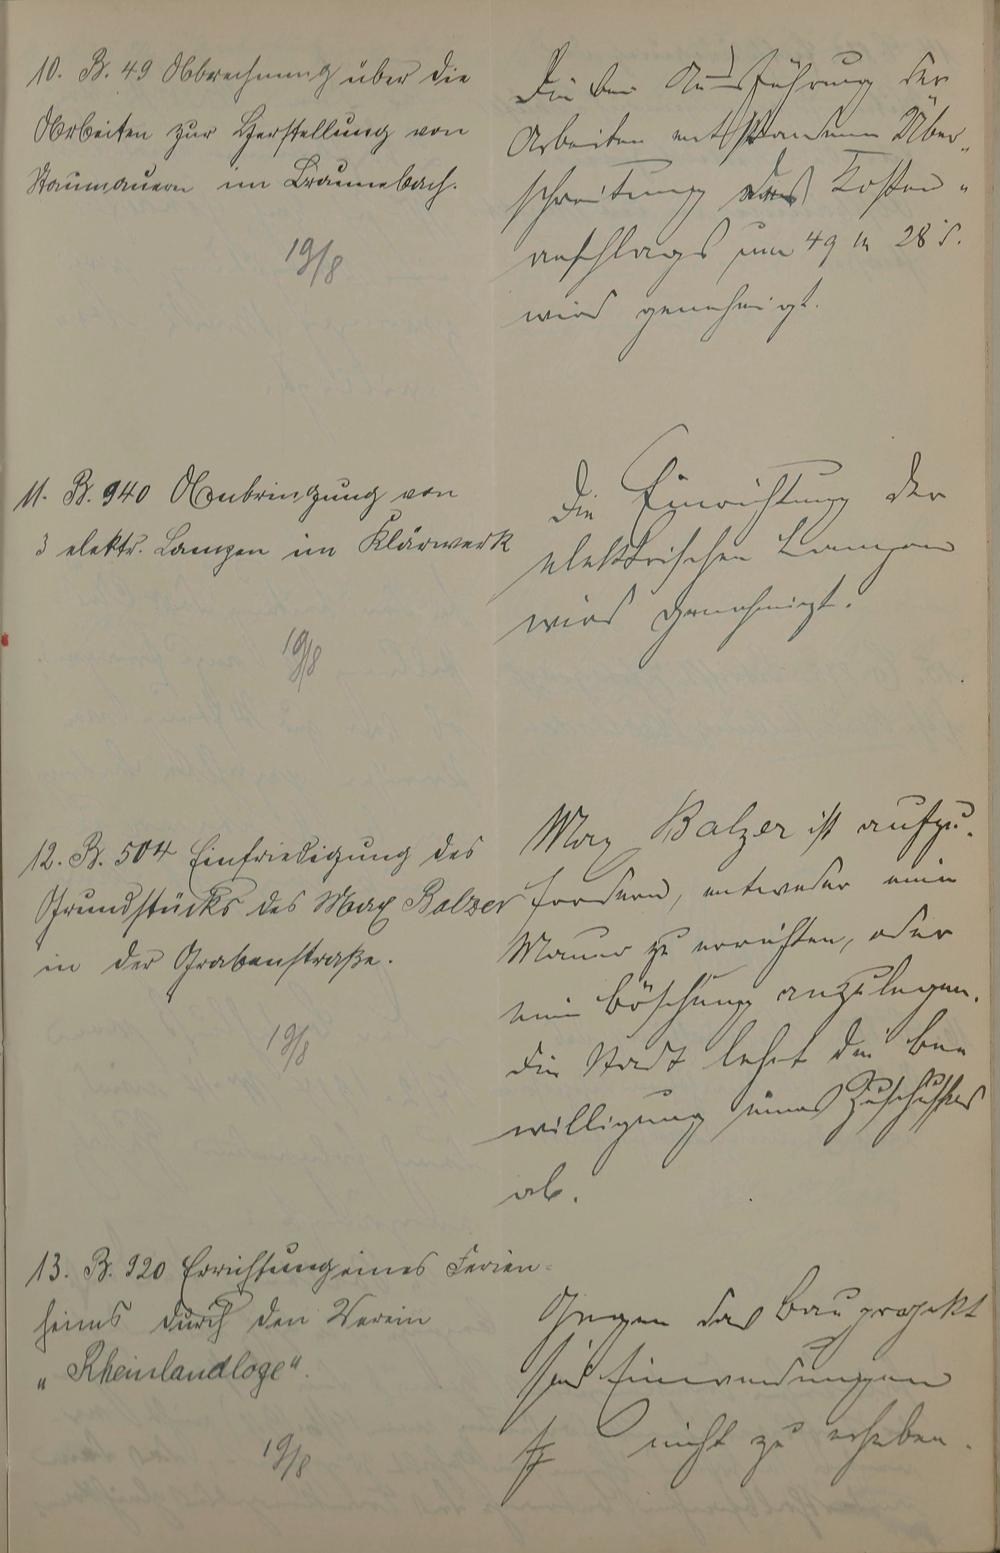 10. B. 49 Abbrechnung über die
Arbeiten zur Herstellung von
Staumauern im Braunebach.
19/8
Die bei Ausführung der
Arbeiten entstandene Über-
schreitung des Kosten-
anschlags um 49 M 28 S.
wird genehmigt.
11. B. 940 Anbringung von
3 elektr. Lampen im Klärwerk
19/8
Die Einrichtung der
elektrischen Lampen
wird genehmigt.
12. B. 504 Einfriedigung des
Grundstücks des Max Balzer
in der Grabenstraße.
19/8
Max Balzer ist aufzu-
fordern, entweder eine
Mauer zu errichten, oder
eine Böschung anzulegen.
Die Stadt lehnt die Be-
willigung eines Zuschusses
ab.
13. B. 920 Errichtung eines Ferien-
heims durch den Verein
„Rheinlandloge“.
19/8
Gegen das Bauprojekt
sind Einwendungen
nicht zu erheben.